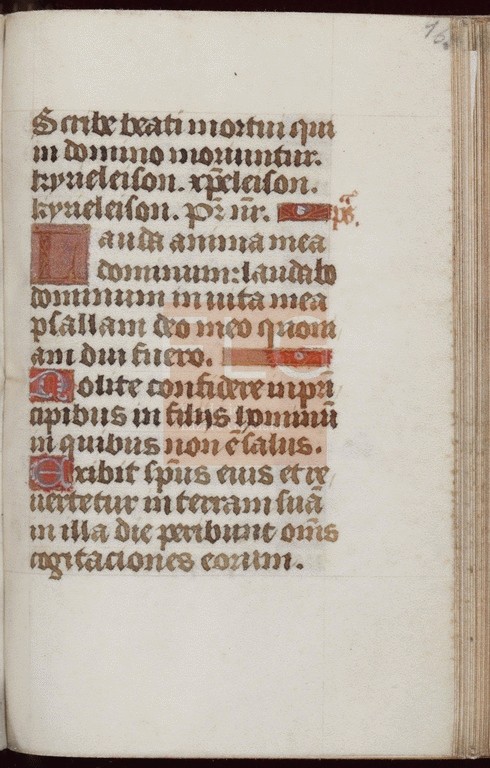 76
Scribe beati mortui qui
in domino moriuntur.
kyrieleison. xp̄eleison.
kyrieleison. Pr̄ nr̄. ps̄.
Lauda anima mea
dominum: laudabo
dominum in uita mea
psallam deo meo quom
am diu fuero.
Nolite confidere in pri̅
cipibus in filijs hominu̅
in quibus non e̅ salus.
Exibit sp̅us eius et re
uertetur in terram sua̅
in illa die peribunt om̅s
cogitaciones eorum.